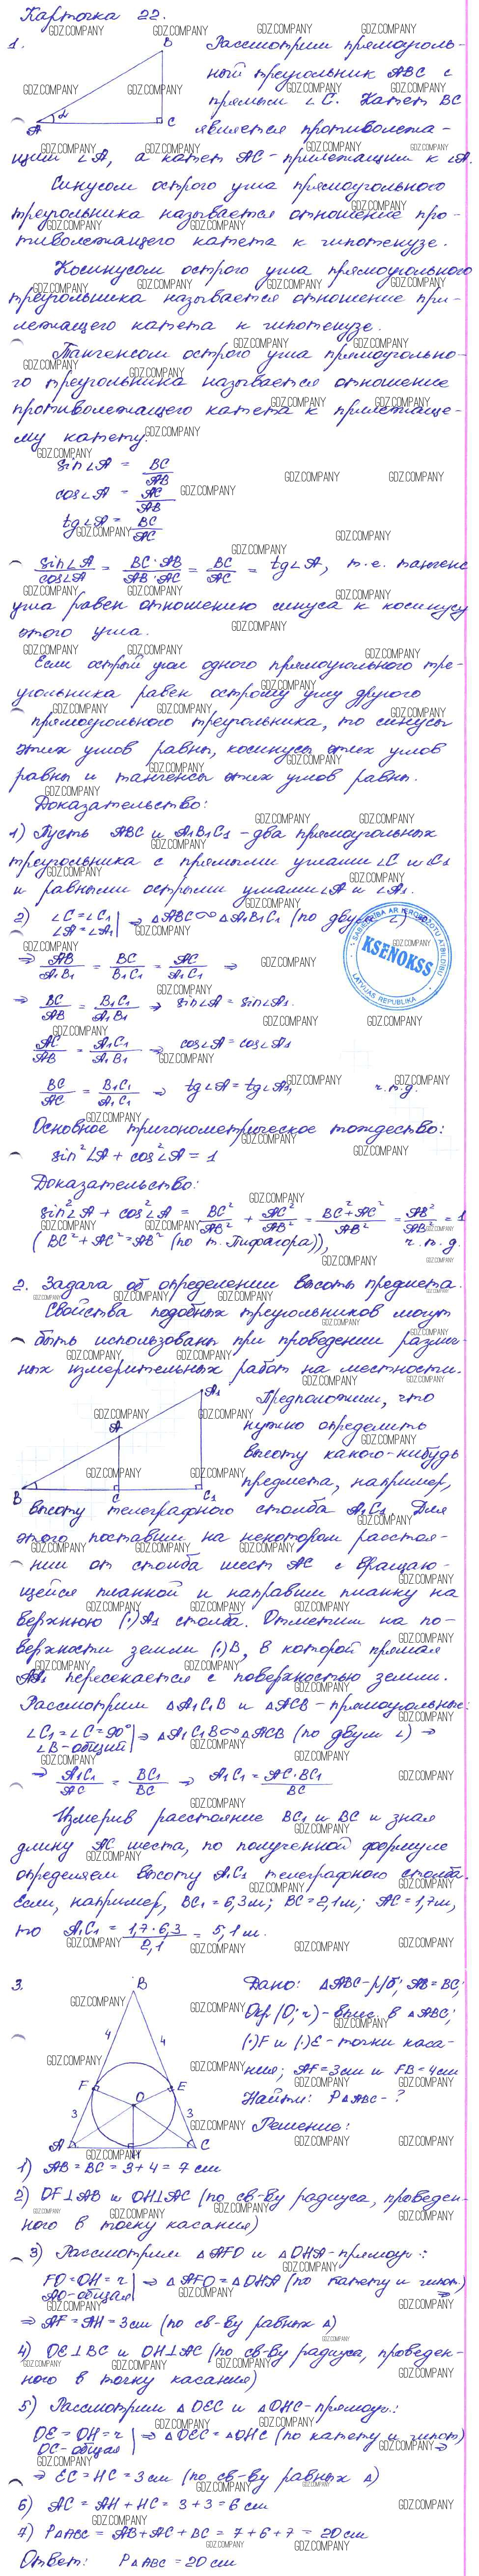 Карточка 22.
1.
B
A
α
C
Рассмотрим прямоуголь-
ный треугольник ABC с
прямым ∠C. Катет BC
является противолежа-
щим ∠A, а катет AC - прилежащим к ∠A.
Синусом острого угла прямоугольного
треугольника называется отношение про-
тиволежащего катета к гипотенузе.
Косинусом острого угла прямоугольного
треугольника называется отношение при-
лежащего катета к гипотенузе.
Тангенсом острого угла прямоугольно-
го треугольника называется отношение
противолежащего катета к прилежаще-
му катету.
sin∠A = BC/AB
cos∠A = AC/AB
tg∠A = BC/AC
sin∠A/cos∠A = BC·AB/AB·AC = BC/AC = tg∠A, т.е. тангенс
угла равен отношению синуса к косинусу
этого угла.
Если острый угол одного прямоугольного тре-
угольника равен острому углу другого
прямоугольного треугольника, то синусы
этих углов равны, косинусы этих углов
равны и тангенсы этих углов равны.
Доказательство:
1) Пусть ABC и A1B1C1 - два прямоугольных
треугольника с прямыми углами ∠C и ∠C1
и равными острыми углами ∠A и ∠A1.
2) ∠C=∠C1
∠A=∠A1 | ⇒ ΔABC∞ΔA1B1C1 (по двум ∠) ⇒
⇒ AB/A1B1 = BC/B1C1 = AC/A1C1 ⇒
⇒ BC/AB = B1C1/A1B1 ⇒ sin∠A = sin∠A1.
AC/AB = A1C1/A1B1 ⇒ cos∠A = cos∠A1
BC/AC = B1C1/A1C1 ⇒ tg∠A = tg∠A1, ч.т.д.
KSENOKSS
SABIEDRĪBA AR IEROBEŽOTU ATBILDĪBU
LATVIJAS REPUBLIKA
Основное тригонометрическое тождество:
sin²∠A + cos²∠A = 1
Доказательство:
sin²∠A + cos²∠A = BC²/AB² + AC²/AB² = BC²+AC²/AB² = AB²/AB² = 1
(BC²+AC²=AB² (по т. Пифагора)), ч.т.д.
2. Задача об определении высоты предмета.
Свойства подобных треугольников могут
быть использованы при проведении различ-
ных измерительных работ на местности.
A1
A
B
C
C1
Предположим, что
нужно определить
высоту какого-нибудь
предмета, например,
высоту телеграфного столба A1C1. Для
этого поставим на некотором расстоя-
нии от столба шест AC с вращаю-
щейся планкой и направим планку на
верхнюю (·)A1 столба. Отметим на по-
верхности земли (·)B, в которой прямая
AA1 пересекается с поверхностью земли.
Рассмотрим ΔA1C1B и ΔACB - прямоугольные:
∠C1=∠C=90°
∠B-общий | ⇒ ΔA1C1B∞ΔACB (по двум ∠) ⇒
⇒ A1C1/AC = BC1/BC ⇒ A1C1 = AC·BC1/BC
Измерив расстояние BC1 и BC и зная
длину AC шеста, по полученной формуле
определяем высоту A1C1 телеграфного столба.
Если, например, BC1 = 6,3м; BC=2,1м; AC=1,7м,
то A1C1 = 1,7·6,3/2,1 = 5,1м.
3.
B
4
4
F
E
O
3
3
A
H
C
Дано: ΔABC-р/б; AB=BC;
Окр(O;r)-впис. в ΔABC;
(·)F и (·)E - точки каса-
ния; AF=3см и FB=4см
Найти: PΔABC-?
Решение:
1) AB=BC=3+4=7см
2) OF⊥AB и OH⊥AC (по св-ву радиуса, проведен-
ного в точку касания)
3) Рассмотрим ΔAFO и ΔOHA-прямоуг.:
FO=OH=r
AO-общая | ⇒ ΔAFO=ΔOHA (по катету и гипот.)
⇒ AF=AH=3см (по св-ву равных Δ)
4) OE⊥BC и OH⊥AC (по св-ву радиуса, проведен-
ного в точку касания)
5) Рассмотрим ΔOEC и ΔOHC-прямоуг.:
OE=OH=r
OC-общая | ⇒ ΔOEC=ΔOHC (по катету и гипот.) ⇒
⇒ EC=HC=3см (по св-ву равных Δ)
6) AC=AH+HC=3+3=6см
7) PΔABC=AB+AC+BC=7+6+7=20см
Ответ: PΔABC=20см
GDZ.COMPANY